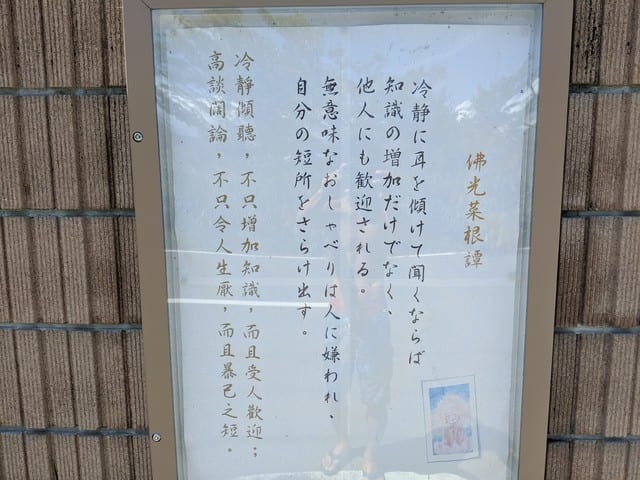 佛光菜根譚
冷静に耳を傾けて聞くならば
知識の増加だけでなく、
他人にも歓迎される。
無意味なおしゃべりは人に嫌われ、
自分の短所をさらけ出す。
冷靜傾聽，不只增加知識，而且受人歡迎；
高談闊論，不只令人生厭，而且暴己之短。